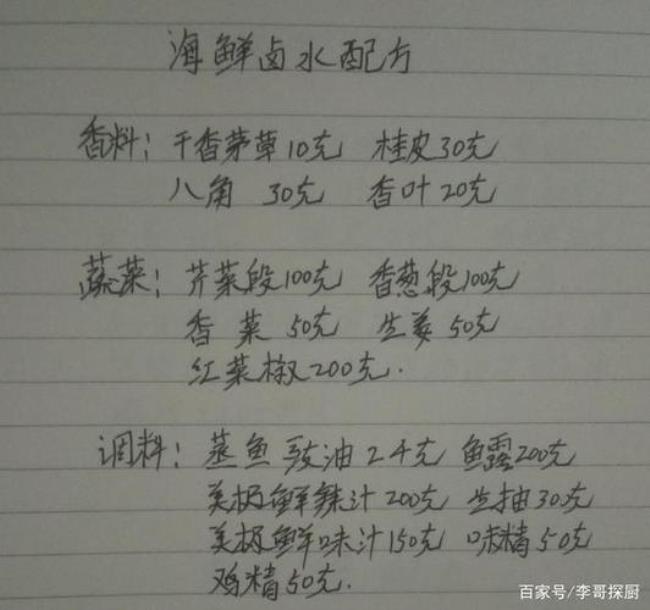 海鲜卤水配方
香料：干香茅草10克 桂皮30克
八角 30克 香叶20克
蔬菜：芹菜段100克 香葱段100克
香菜 50克 生姜50克
红菜椒200克.
调料：蒸鱼豉油2千克 鱼露200克
美极鲜辣汁200克 生抽30克
美极鲜味汁150克 味精50克
鸡精50克.
百家号/李哥探厨